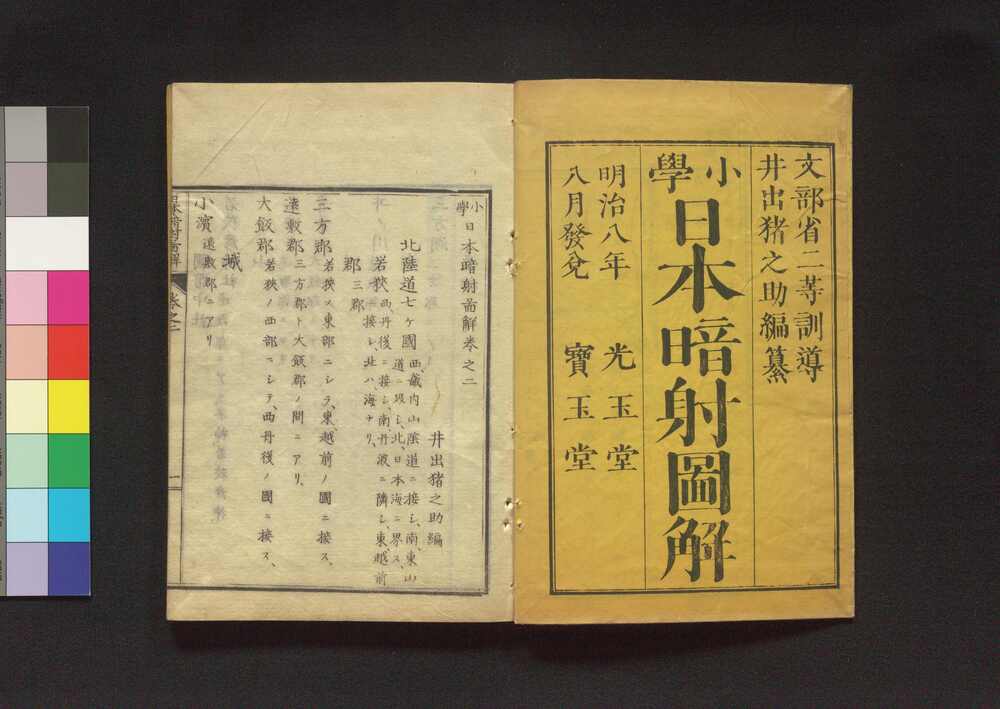 文部省二等訓導
井出猪之助編纂
小學
日本暗射圖解
明治八年
八月發兌
光玉堂
寶玉堂
小學日本暗射啚解巻之二
井出猪之助編
北陸道七ケ國
西、畿内山陰道ニ接シ、南、東山
道ニ界シ、北、日本海ニ界ス、
若狹
西、丹後ニ接シ、南、丹波ニ隣シ、東、越前
ニ接シ、北ハ海ナリ、
郡三郡
三方郡 若狹ノ東部ニシテ、東、越前ノ國ニ接ス、
遠敷郡 三方郡ト大飯郡ノ間ニアリ、
大飯郡 若狹ノ西部ニシテ、西丹後ノ國ニ接ス、
城
小濱 遠敷郡ニアリ
巻之二
一